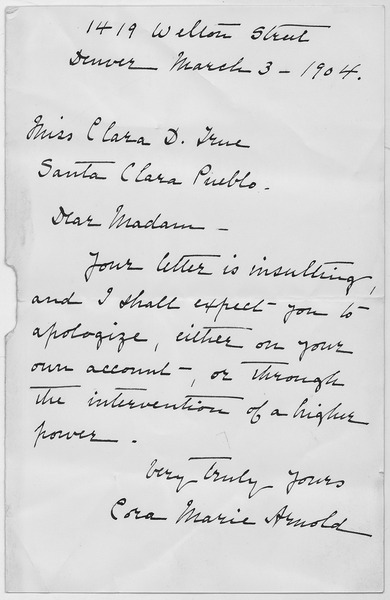 1419 Welton Street
Denver March 3 - 1904.
Miss Clara D. True
Santa Clara Pueblo.
Dear Madam -
Your letter is insulting,
and I shall expect you to
apologize, either on your
own account -, or through
the intervention of a higher
power.
Very truly yours
Cora Marie Arnold